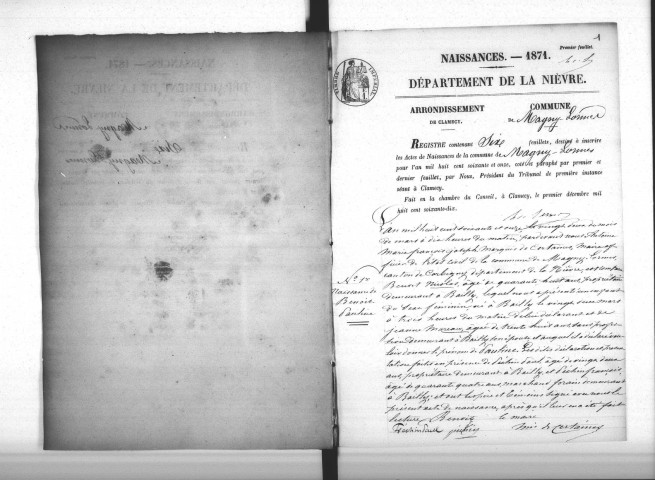 1
Premier feuillet.
NAISSANCES. — 1871.
DÉPARTEMENT DE LA NIÈVRE.
ARRONDISSEMENT
DE CLAMECY.
COMMUNE
de Magny Lormes
REGISTRE contenant Dix feuillets, destiné à inscrire
les Actes de Naissances de la commune de Magny-Lormes
pour l'an mil huit cent soixante et onze, coté et paraphé par premier et
dernier feuillet, par Nous, Président du Tribunal de première instance
séant à Clamecy.
Fait en la chambre du Conseil, à Clamecy, le premier décembre mil
huit cent soixante-dix.
L'an mil huit cent soixante et onze le vingt deux du mois
de mars à dix heures du matin, pardevant nous Antoine
Marie françois joseph Marquis de Certaines, Maire of-
ficier de l'état civil de la commune de Magny-Lormes
canton de Corbigny, département de la Nièvre, est comparu
Benoit Nicolas, âgé de quarante huit ans, propriétaire
demeurant à Bailly, lequel nous a présenté un enfant
du sexe féminin, né à Bailly le vingt deux mars
à trois heures du matin de lui déclarant et de
jeanne Moreau, âgée de trente huit ans, sans profes-
sion demeurant à Bailly son épouse et auquel il a déclaré vou-
loir donner le prénom de Pauline. Les dites déclaration et présen-
tation faites en présence de
ans, propriétaire demeurant à Bailly et françois,
âgé de quarante quatre ans, marchand forain demeurant
à Bailly; et ont les père et témoins signé avec nous le
présent acte de naissance, après qu'il leur en a été fait
lecture. Benoit le maire
Mis de certaines
N° 1er
Naissance de
Benoit
Pauline